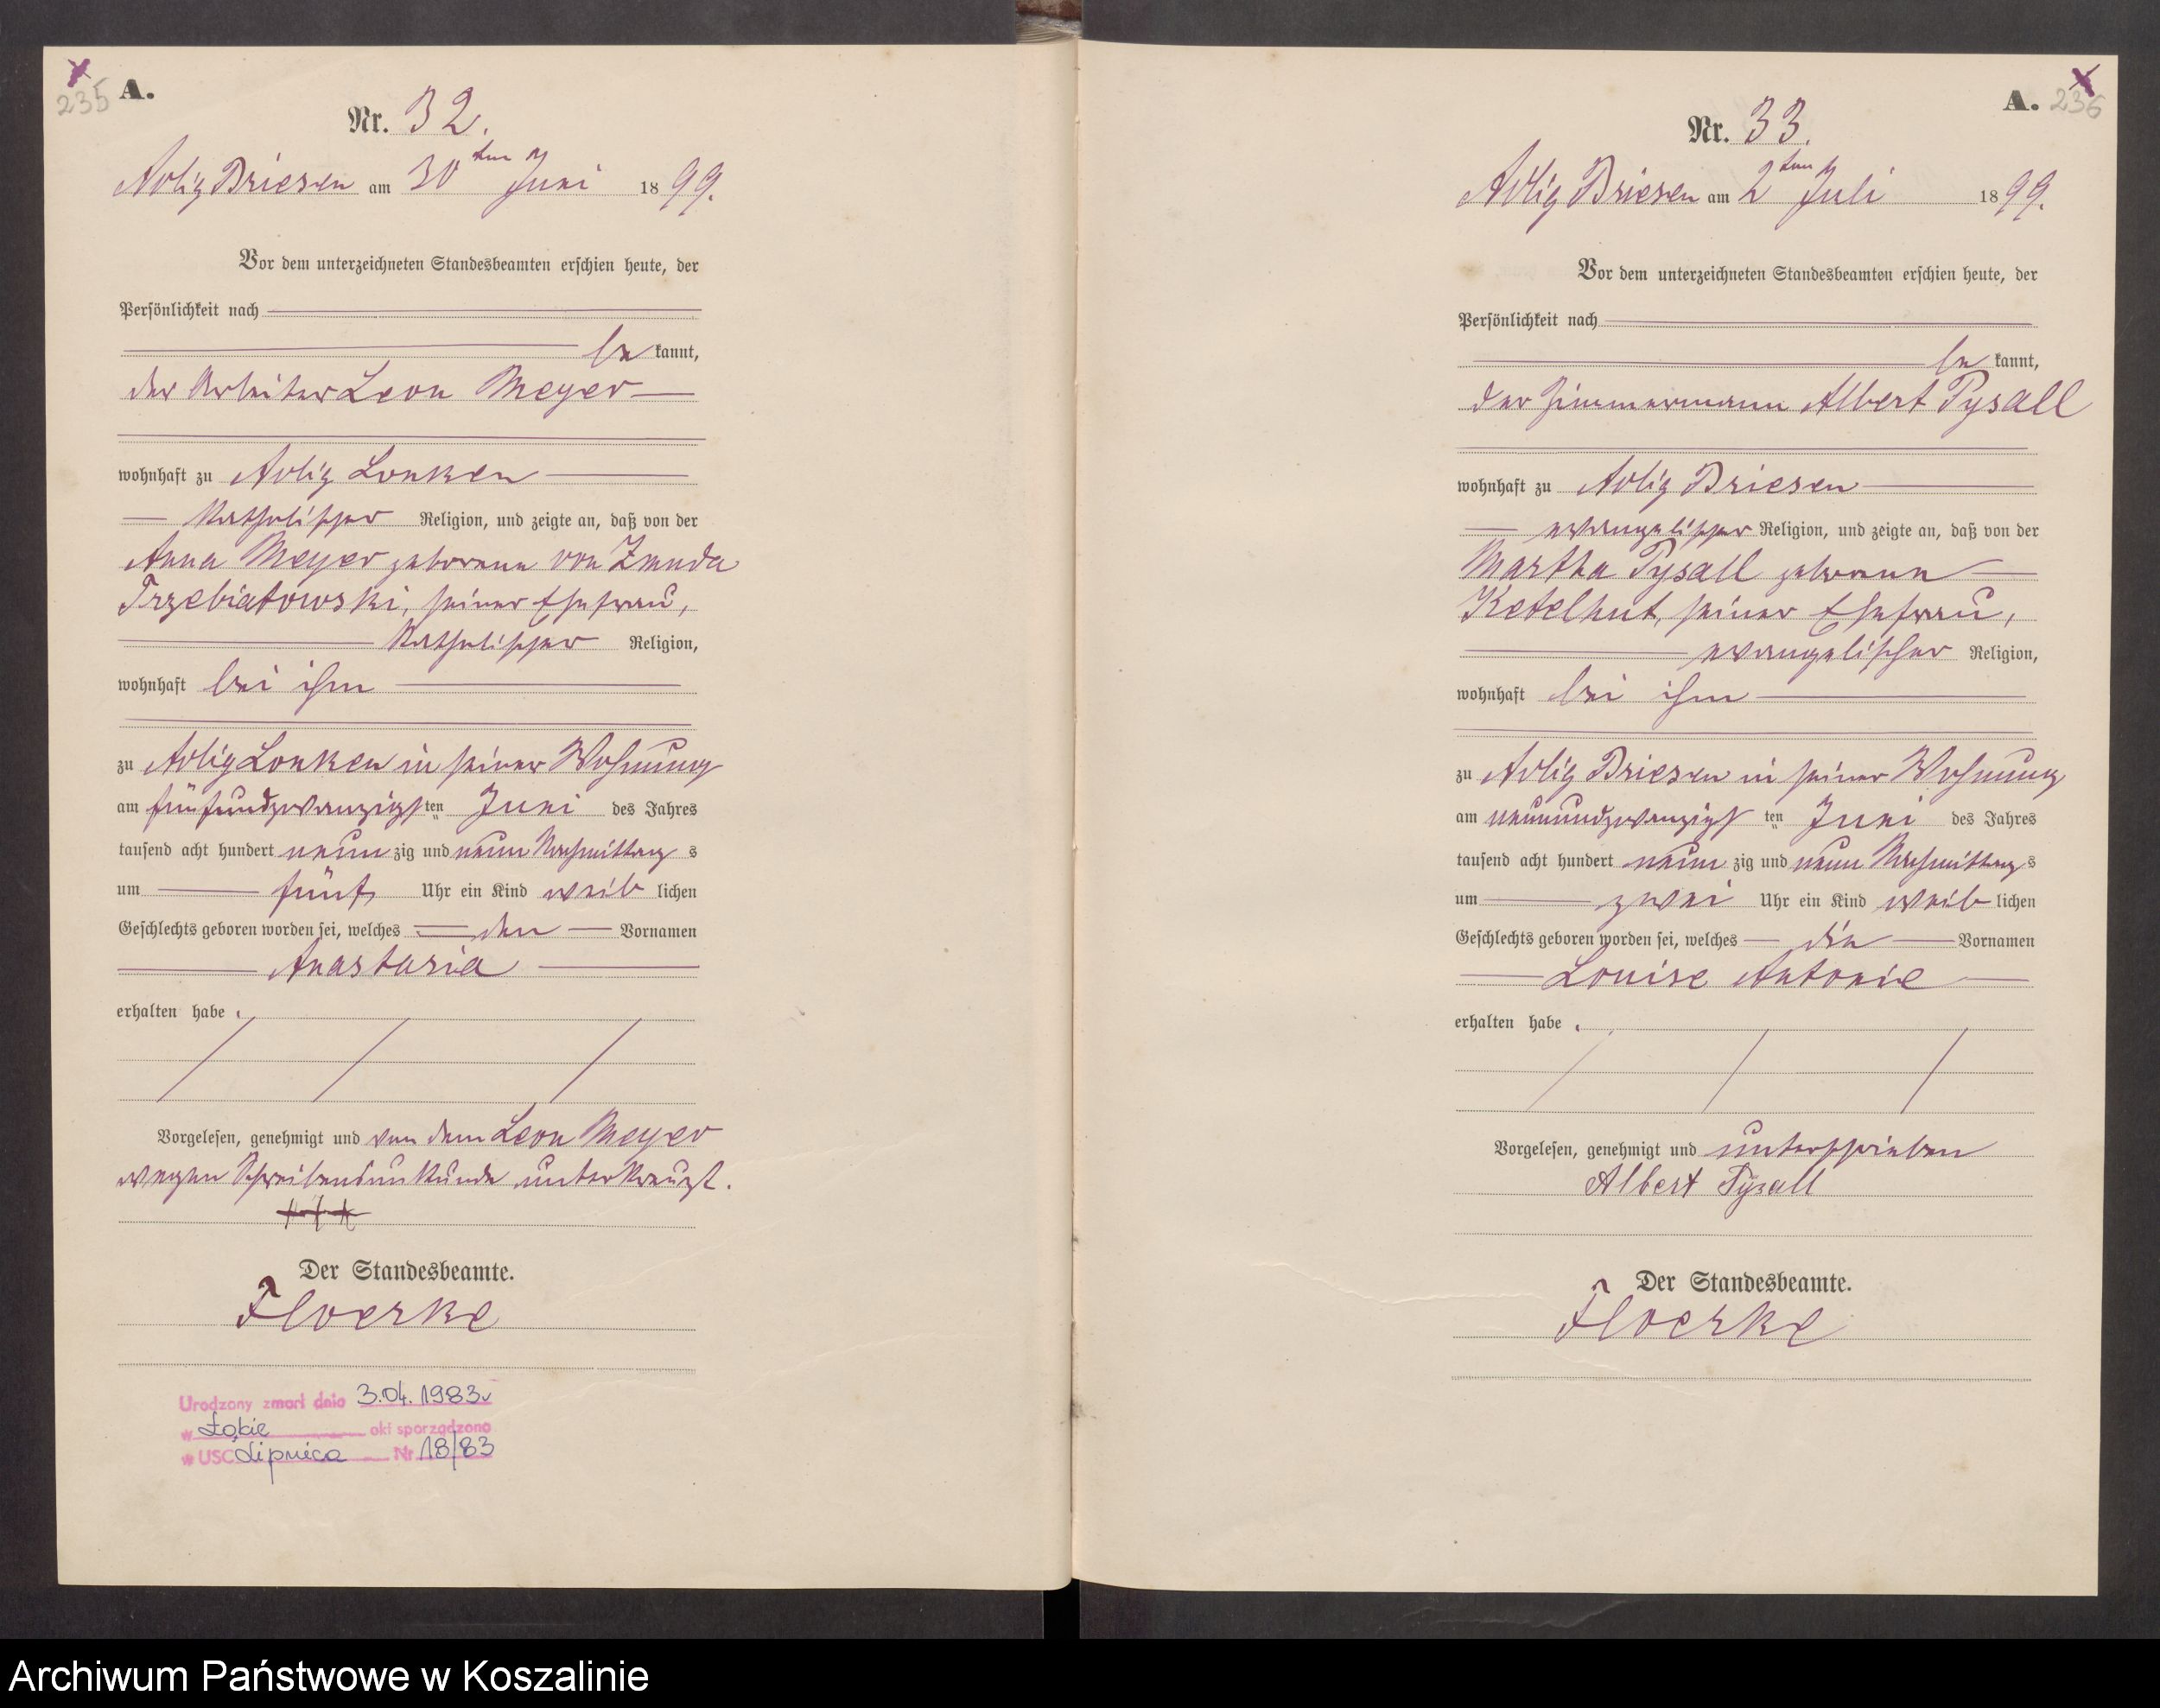 235 A.
Nr. 32.
Adlig Briesen am 30ten Juni 1899.
Vor dem unterzeichneten Standesbeamten erschien heute, der
Persönlichkeit nach
be kannt,
der Arbeiter Leon Meyer
wohnhaft zu Adlig Lonken
katholischer Religion, und zeigte an, daß von der
Anna Meyer geborene von Zmuda
Trzebiatowski, seiner Ehefrau,
katholischer Religion,
wohnhaft bei ihm
zu Adlig Lonken in seiner Wohnung
am fünfundzwanzigsten Juni des Jahres
tausend acht hundert neun zig und neun Nachmittag s
um fünf Uhr ein Kind weib lichen
Geschlechts geboren worden sei, welches den Vornamen
Anastasia
erhalten habe.
Vorgelesen, genehmigt und von dem Leon Meyer
wegen Schreibensunkunde unterkreuzt.
+++
Der Standesbeamte.
Floerke
Urodzony zmarł dnia 3.04.1983r
w Łąkie akt sporządzono
w USC Lipnica Nr 18/83
A. 236
Nr. 33.
Adlig Briesen am 2ten Juli 1899.
Vor dem unterzeichneten Standesbeamten erschien heute, der
Persönlichkeit nach
be kannt,
der Zimmermann Albert Pysall
wohnhaft zu Adlig Briesen
evangelischer Religion, und zeigte an, daß von der
Martha Pysall geborene
Ketelhut, seiner Ehefrau,
evangelischer Religion,
wohnhaft bei ihm
zu Adlig Briesen in seiner Wohnung
am neunundzwanzigsten Juni des Jahres
tausend acht hundert neun zig und neun Nachmittag s
um zwei Uhr ein Kind weib lichen
Geschlechts geboren worden sei, welches die Vornamen
Louise Antonie
erhalten habe.
Vorgelesen, genehmigt und unterschrieben
Albert Pysall
Der Standesbeamte.
Floerke
Archiwum Państwowe w Koszalinie